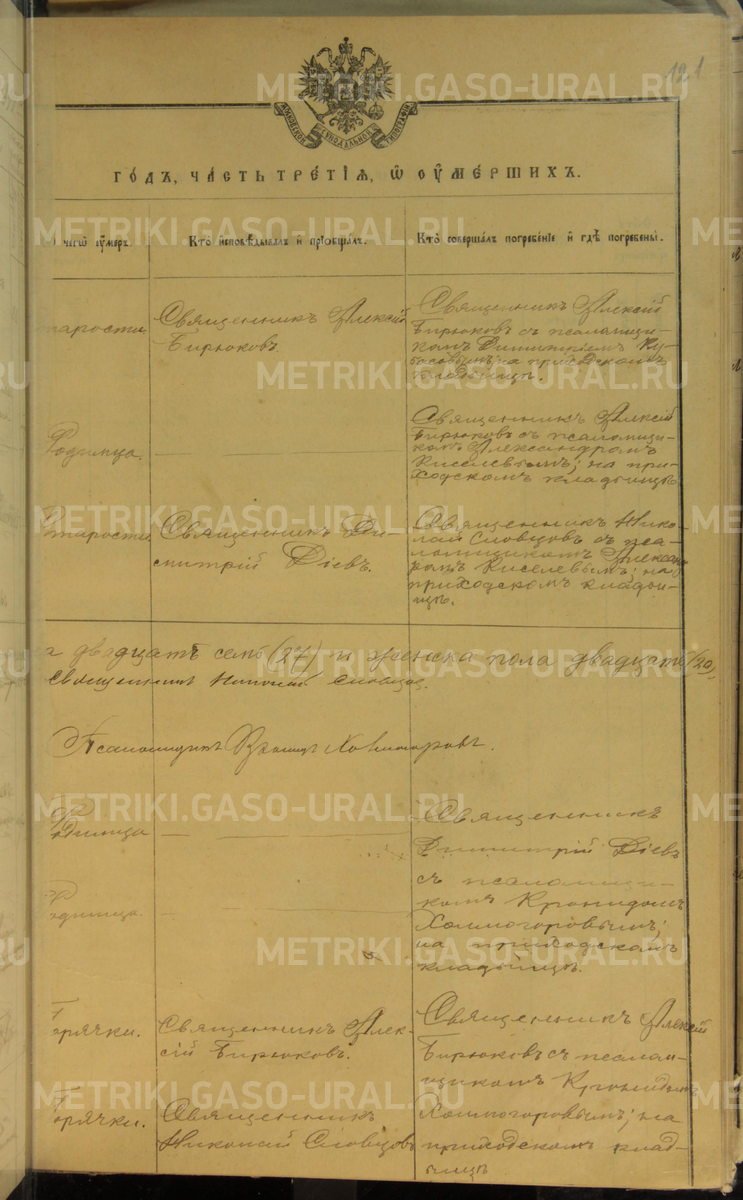 121
МОСКОВСКОЙ СѴНОДАЛЬНОЙ ТИПОГРАФІИ
ГОДЪ, ЧАСТЬ ТРЕТІЯ, Ѡ ОУМЕРШИХЪ.
чегѡ оумеръ.
Кто исповѣдывалъ и пріобщалъ.
Кто совершалъ погребеніе и гдѣ погребены.
старости
Священникъ Алексій
Бирюковъ.
Священникъ Алексій
Бирюковъ съ псаломщи-
комъ Димитріемъ Ку-
басовымъ; на приходскомъ
кладбищѣ.
Родимца.
Священникъ Алексій
Бирюковъ съ псаломщи-
комъ Александромъ
Киселевымъ; на при-
ходскомъ кладбищѣ
Старости
Священникъ Ди-
митрій Діевъ.
Священникъ Нико-
лай Словцовъ съ пса-
ломщикомъ Алексан-
ромъ Киселевымъ; на
приходскомъ кладби-
щѣ.
двадцать семь (27) и женска пола двадцать (20),
Священникъ Николай Словцов.
Псаломщикъ Холмогоровъ.
Родимца
Священникъ
Димитрій Діевъ
съ псаломщи-
комъ Кронидомъ
Холмогоровымъ;
на приходскомъ
кладбищѣ.
Родимца
Горячки.
Священникъ Алек-
сій Бирюковъ.
Священникъ Алексій
Бирюковъ съ псалом-
щикомъ Кронидомъ
Холмогоровымъ; на
приходскомъ клад-
бищѣ
Горячки.
Священникъ
Николай Словцовъ
METRIKI.GASO-URAL.RU